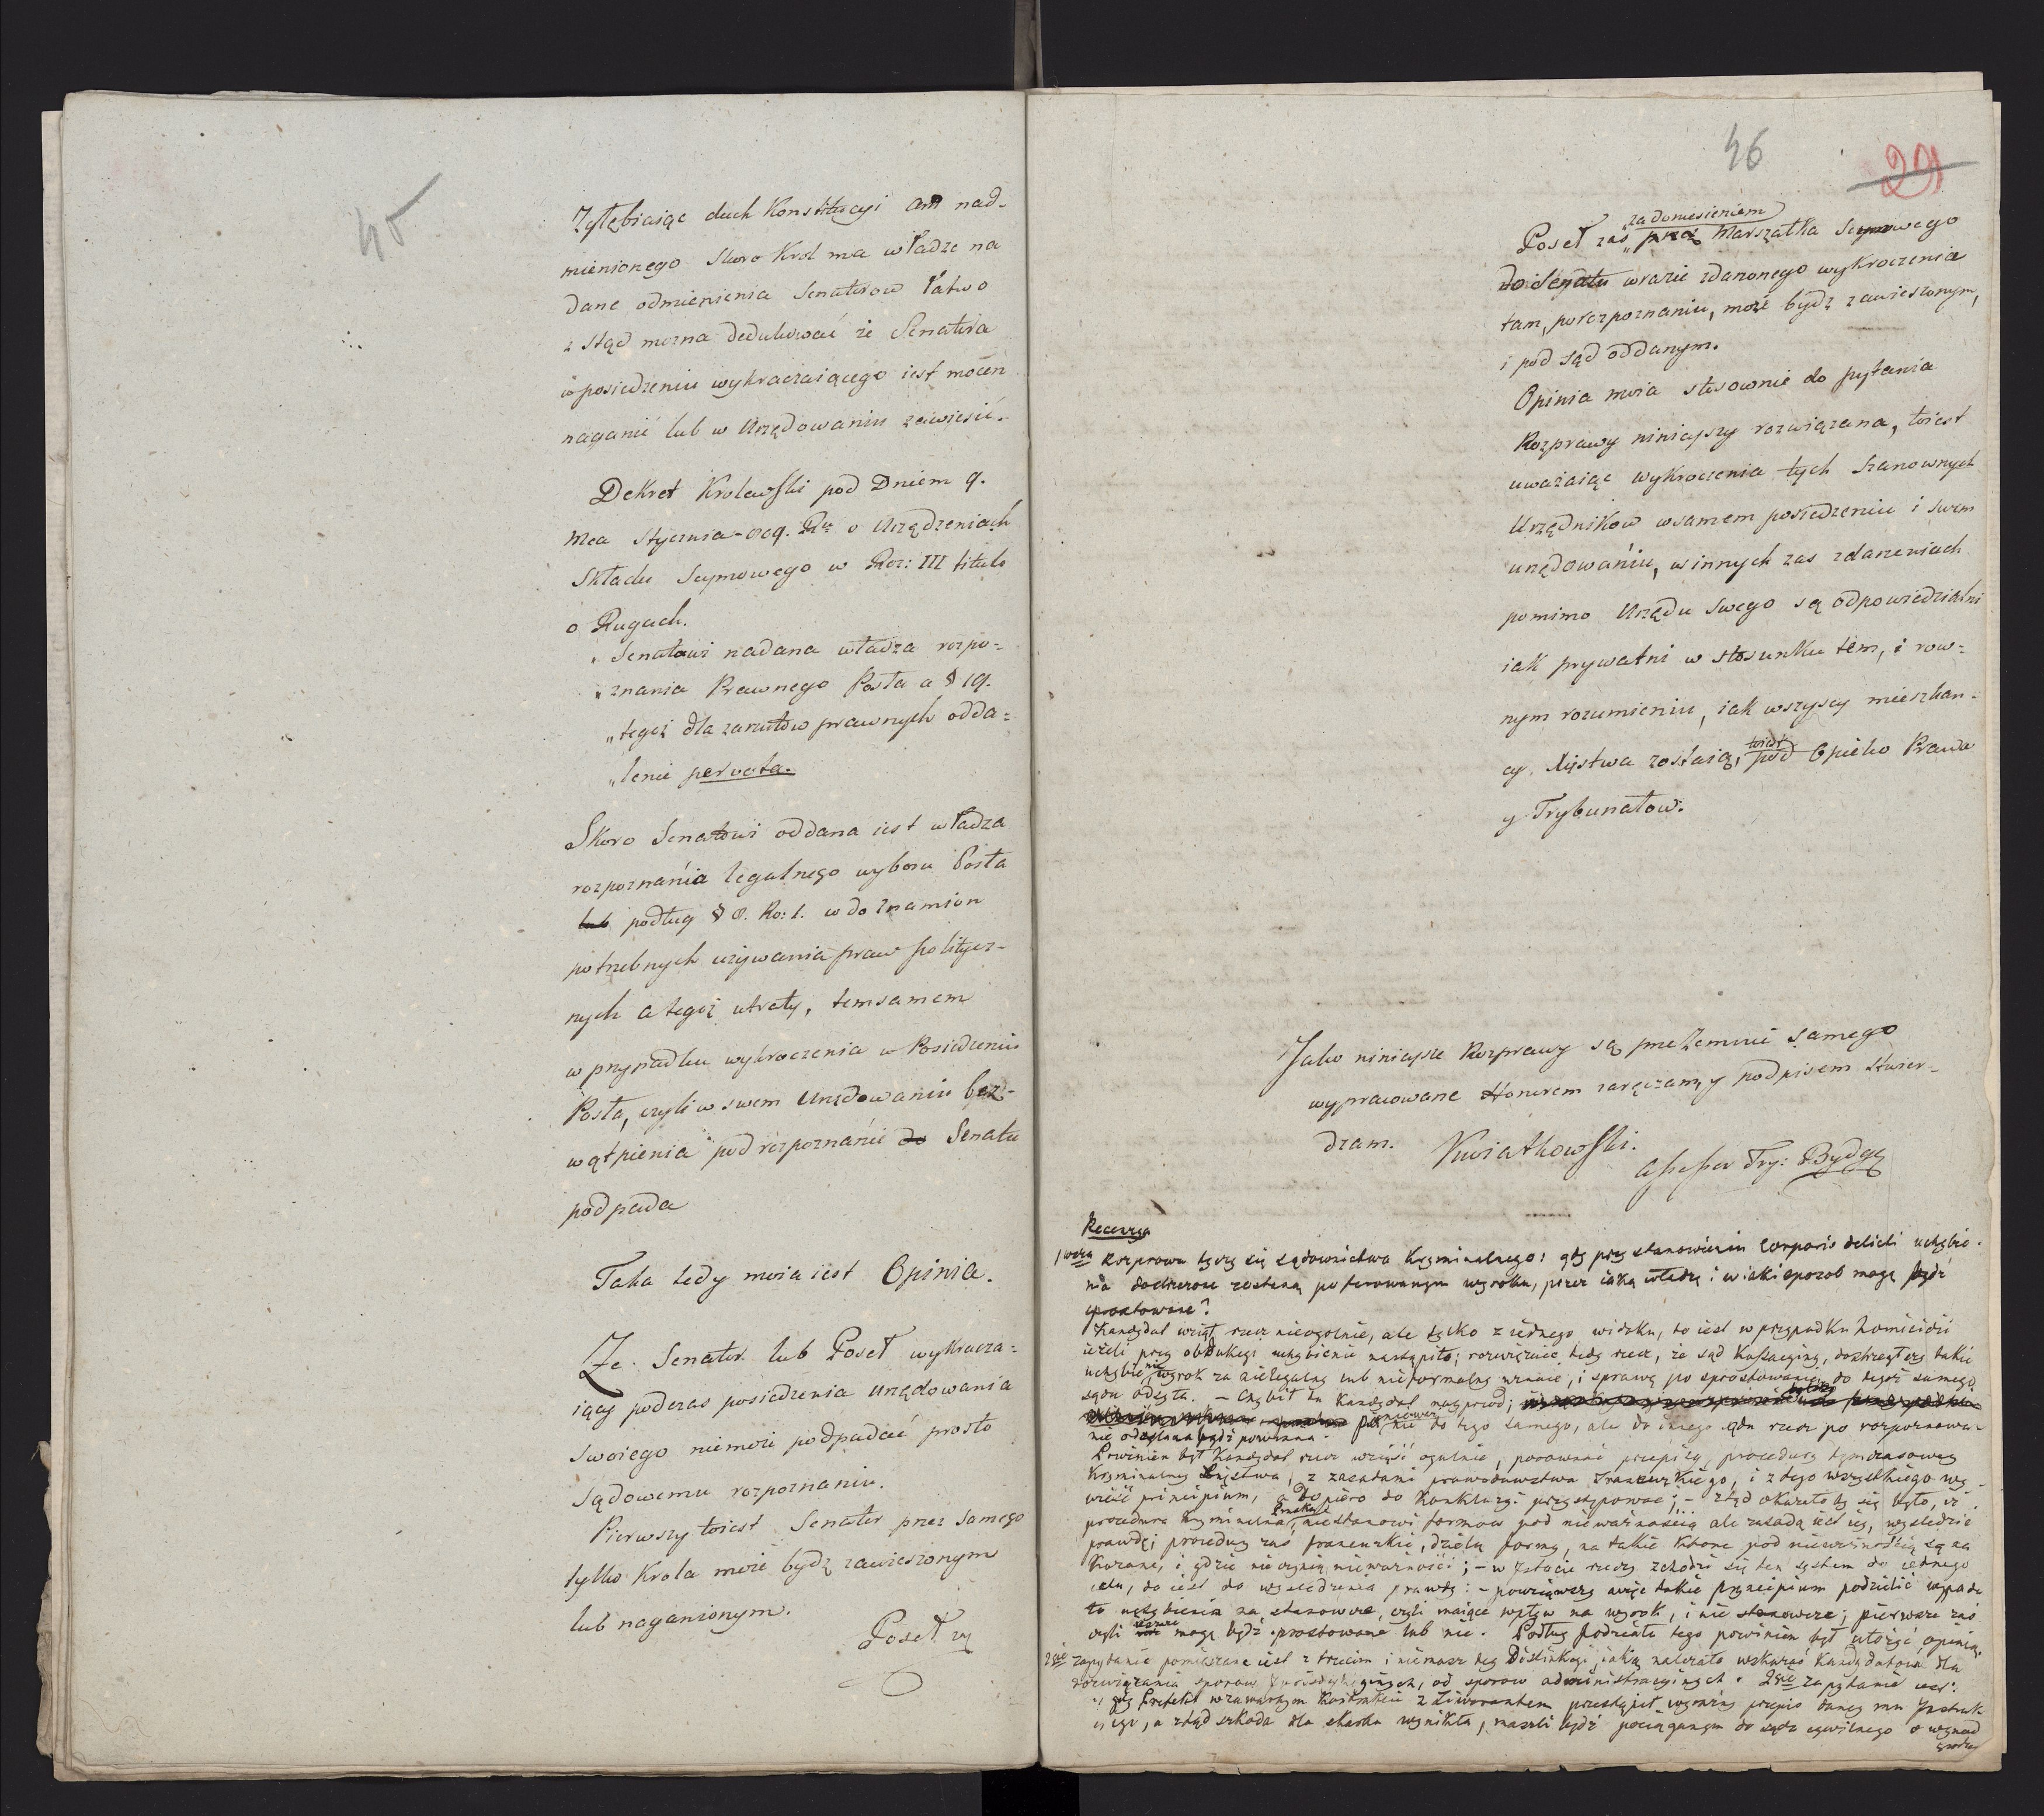 45
Zgłębiaiąc duch Konstitucyi am nad-
mienionego skoro Krol ma władze na
dane odmienienia Senatorow łatwo
z stąd mozna dedukować że Senatora
w posiedzeniu wykraczaiącego iest mocen
naganić lub w Urzędowaniu zawiesić.
Dekret Krolewski pod Dniem 9.
Mca Stycznia 809. Ru o Urządzeniach
Składu Seymowego w Roz: III titulo
o Rugach.
„Senatowi nadana władza rozpo=
„znania Prawnego Posła a § 19.
„tegoż dla zarzutów prawnych odda=
„lenie per vota.
Skoro Senatowi oddana iest władza
rozpoznania legalnego wyboru Posła
lub podług § 8. Ro: 1. w do znamion
potrzebnych używania praw politycz-
nych a tegoż utraty, temsamem
w przypadku wykroczenia w Posiedzeniu
Posła, czyli w swem Urzędowaniu bez-
wątpienia pod rozpoznanie do Senatu
podpada
Taka tedy moia iest Opinia.
Ze. Senator lub Poseł wykracza=
iący podczas posiedzenia urzędowania
swoiego niemoże podpadać prosto
sądowemu rozpoznaniu.
Pierwszy toiest Senator przez samego
tylko Krola może bydź zawieszonym
lub naganionym.
Poseł zaś
46
29
za doniesieniem
Poseł zaś „przez Marszałka Seymowego
do Senatu w razie zdarzonego wykroczenia
tam, po rozpoznaniu, może bydź zawieszonym,
i pod sąd oddanym.
Opinia moia stosownie do pytania
Rozprawy niniejszy rozwiązana, toiest
uważaiąc wykroczenia tych Szanownych
Urzędnikow w samem posiedzeniu i swem
urzędowaniu, w innych zas zdarzeniach
pomimo Urzędu Swego są odpowiedzialni
iak prywatni w stosunku tem, i row=
nym rozumieniu, iak wszyscy mieszkan-
cy Xięstwa zostaią, toiest pod Opieko Prawa
y Trybunałow.
Jako niniejsze Rozprawy są przezemnie samego
wypracowane Honorem zaręczam, y podpisem stwier-
dzam. Kwiatkowski.
assessor Try: Bydg
Recenzya
1wsza Rozprawa tyczy się sądownictwa kryminalnego: gdy przy stanowieniu Corporis delicti uchybie-
nia dostrzeżone zostaną po ferowanym wyroku, przez iaką władzę i w iaki sposob mogą bydź
sprostowane?
Kandydat wziął rzecz nieogolnie, ale tylko z iednego widoku, to iest w przypadku homicidii
ieżeli przy obdukcyi uchybienie nastąpiło; rozwięzuie tedy rzecz, że sąd Kassacyiny, dostrzegłszy takie
uchybienie, wyrok za nielegalny lub nieformalny uznaie, i sprawę po sprostowanie do tegoż samego
sądu odsyła. – Chybił tu Kandydat naprzod;
nie do tego samego, ale do innego sądu rzecz po rozpoznawa-
nie odesłana bydź powinna.
Powinien był Kandydat rzecz wziąść ogulnie, porownać przepisy procedury tymczasowey
Kryminalney Xięstwa, z zasadami prawodawstwa Francuzkiego, i z tego wszystkiego wy-
wieść principium, a dopiero do Konkluzyi przystępować; – ztąd okazałoby się było, iż
procedura kryminalna Pruska, niestanowi formow pod nieważnością ale zasadą iest iey, wyśledzić
prawdę; procedury zaś francuzkie, dzielą formy, na takie które pod nieważnością są na
kazane, i gdzie nie czynią nieważności; – w istocie rzeczy schodzi się ten system do iednego
celu, to iest do wyśledzenia prawdy: – powziąwszy więc takie pryncipium podzielić wypada
te uchybienia na stanowcze, czyli maiące wpływ na wyrok, i nie stanowcze; pierwsze zaś
czyli znowu mogą bydź sprostowane lub nie. Podług podziału tego powinien był ułożyć opinią.
2gie zapytanie pomieszane iest z trzecim i niemasz tey Distinkcyi iaką należało wskazać Kandydatowi dla
rozwiązania sporow Jurisdykcyinych, od sporow administracyinych. 2gie zapytanie iest:
„gdy Prefekt w zawartym Kontrakcie z Liwerantem przestąpił wyraźny przepis daney mu Instruk-
„cyi, a ztąd szkoda dla skarbu wynikła, maszli bydź pociąganym do sądu cywilnego o wynad
grodze